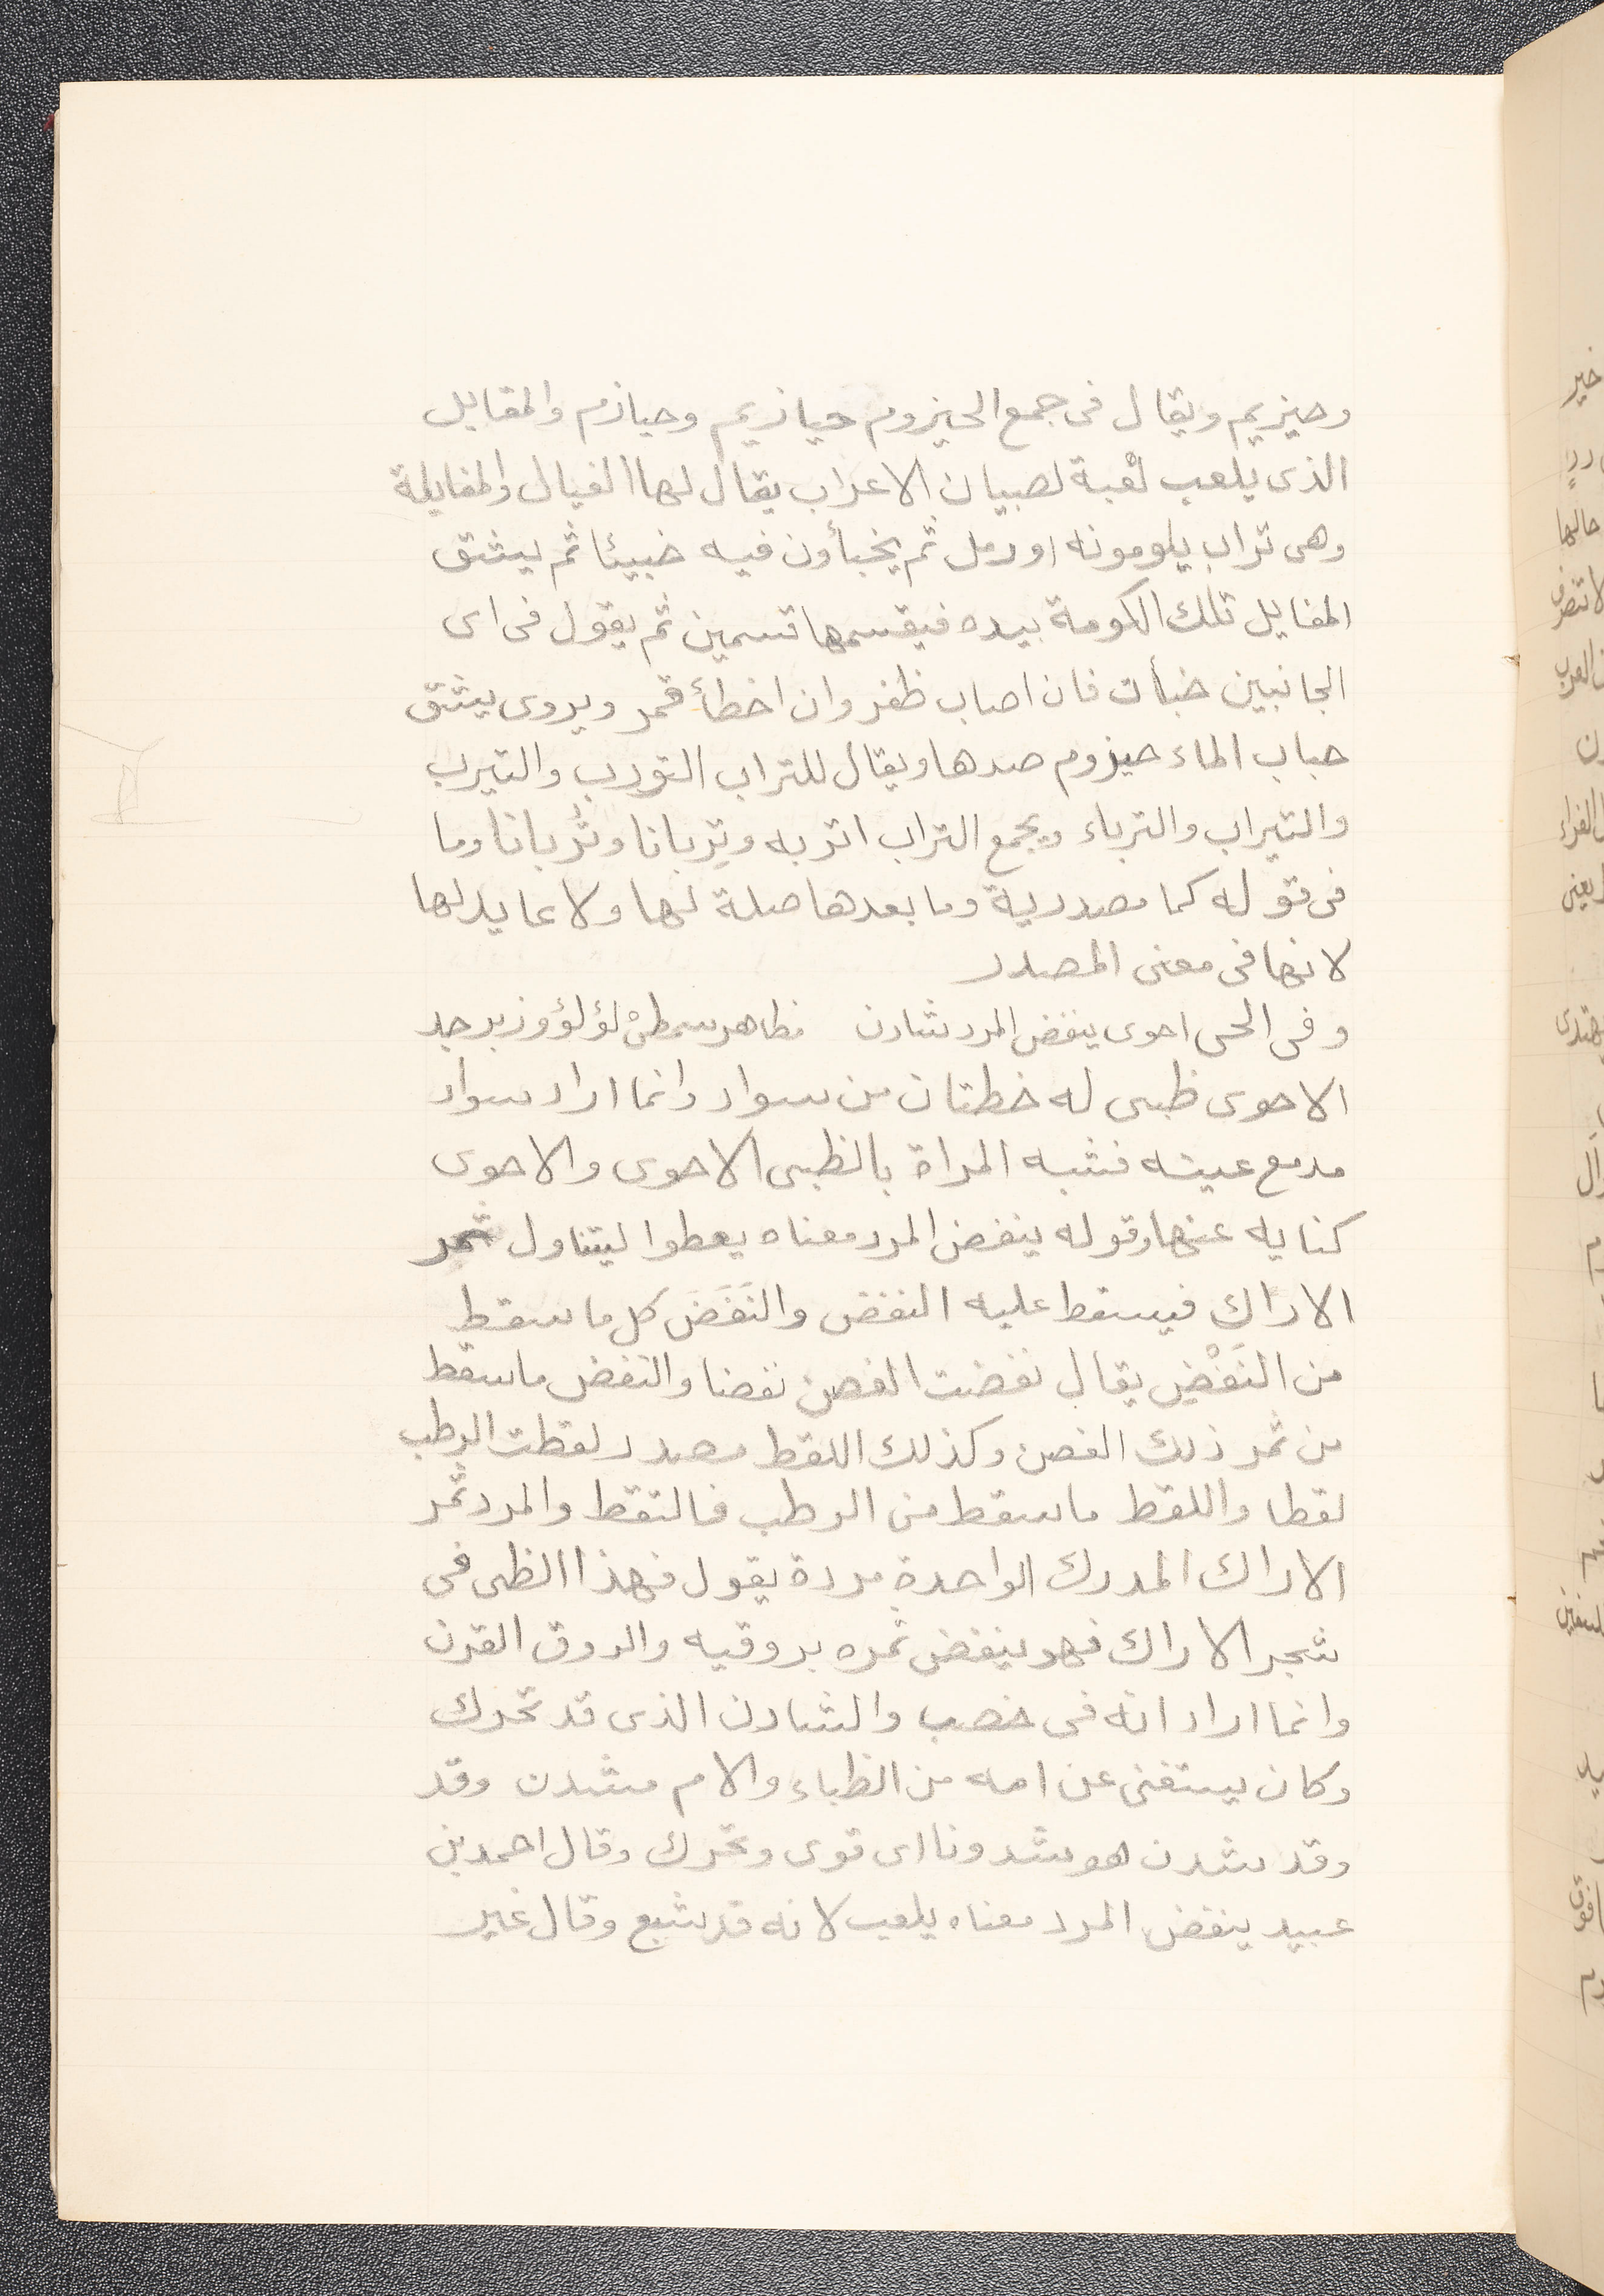 وحيزيم ويقال فى جمع الحيزوم حيازيم وحيازم والمقايل
الذى يلعب لُعْبة لصبيان الاعراب يقال لها الفيال والمفايلة
وهى تراب يكومونه او رمل ثم يخبأون فيه خبيئا ثم يشق
المفايل تلك الكومة بيده فيقسمها قسمين ثم يقول فى اى
الجانبين خبأت فان اصاب ظفر وان اخطأ قمر ويروى يشق
حباب الماء حيزوم صدها ويقال للتراب التورب والتيرب
والتيراب والترباء ويجمع التراب اتربه وتِربانا وتُربانا وما
فى قوله كما مصدرية وما بعدها صلة لها ولا عايد لها
لانها فى معنى المصدر
وفى الحى احوى ينفض المرد شادن مظاهر سمطىْ لؤلؤ وزبرجد
الاحوى ظبى له خطتان من سواد وانما اراد سواد
مدمع عينه فشبه المراة بالظبى الاحوى والاحوى
كنايه عنها وقوله ينفض المرد معناه يعطوا ليتناول ثمر
الاراك فيسقط عليه النفض والنَفَضَ كل ما سقط
من النَفْضِ يقال نفضت الغصن نفضا والنفض ما سقط
من ثمر ذلك الغصن وكذلك اللقط مصدر لقطت الرطب
لقطا واللقط ما سقط من الرطب فالتقط والمرد ثمر
الاراك المدرك الواحدة مردة يقول فهذا الظبى فى
شجر الاراك فهو ينفض ثمره بروقيه والروق القرن
وانما اراد انه فى خصب والشادن الذى قد تحرك
وكان يستغنى عن امه من الظباء والام مشدن وقد
وقد شدن هو شدونا اى قوى وتحرك وقال احمد بن
عبيد ينفض المرد معناه يلعب لانه قد شبع وقال غير